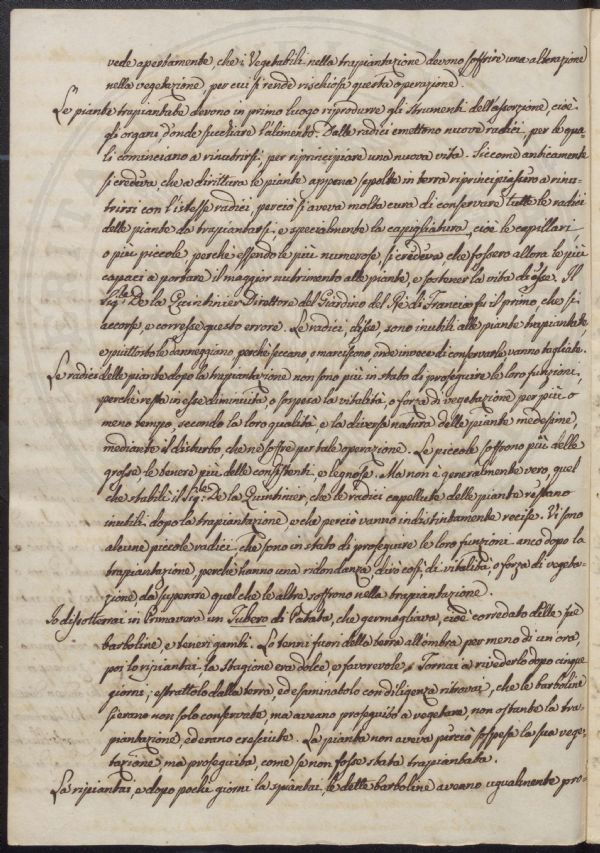 vede apertamente, che i Vegetabili nella trapiantazione devono soffrire una alterazione
nella vegetazione, per cui si rende rischiosa questa operazione.
Le piante trapiantate devono in primo luogo riprodurre gli strumenti dell'assorzione, cioè
gli organi, donde succhiare l'alimento. Dalle radici emettono nuove radici, per le qua-
li cominciano a rinutrirsi, per riprincipiare una nuova vita. Siccome anticamente
si credeva, che a dirittura le piante appena sepolte in terra riprincipiassero a rinu-
trirsi con l'istesse radici, perciò si aveva molta cura di conservare tutte le radici
delle piante da trapiantarsi, e specialmente la capigliatura, cioè le capillari
o più piccole, perchè essendo le più numerose, si credeva che fossero altora le più
capaci a portare il maggior nutrimento alle piante, e sostener la vita di esse. Il
Sig.r De la Quintinier Direttore del Giardino del Rè di Francia fu il primo che si
accorse, e corresse questo errore. Le radici, disse, sono inutili alle piante trapiantate,
e piuttosto le danneggiano, perchè seccano, o marciscono onde invece di conservarle vanno tagliate.
Le radici delle piante dopo la trapiantazione non sono più in stato di proseguire le loro funzioni,
perchè resta in esse diminuita, o sospesa la vitalità, o forza di vegetazione per più, o
meno tempo, secondo la loro qualità, e la diversa natura delle piante medesime,
mediante il disturbo, che ne soffre per tale operazione. Le piccole soffrono più delle
grosse le tenere più delle consistenti, e legnose. Ma non è generalmente vero, quel
che stabilì il Sig.r De la Quintinier, che le radici capellute delle piante restano
inutili dopo la trapiantazione e che perciò vanno indistintamente recise. Vi sono
alcune piccole radici, che sono in stato di proseguire le loro funzioni anco dopo la
trapiantazione, perchè hanno una ridondanza dirò così di vitalità, o forza di vegeta-
zione da superare quel che le altre soffrono nella trapiantazione.
Io disotterrai in Primavera un Tubero di Patata, che germogliava, cioè corredato delle sue
barboline, e teneri gambi. Lo tenni fuori della terra all'ombra per meno di un'ora,
poi lo ripiantai: la stagione era dolce e favorevole. Tornai a rivederlo dopo cinque
giorni; estrattolo dalla terra, ed esaminatolo con diligenza ritrovai, che le barboline
si erano non solo conservate, ma aveano proseguito a vegetare, non ostante la tra-
piantazione, ed erano cresciute. La pianta non aveva perciò sospesa la sua vege-
tazione ma proseguita, come se non fosse stata trapiantata.
La ripiantai, e dopo pochi giorni la spiantai, le dette barboline aveano ugualmente pro-